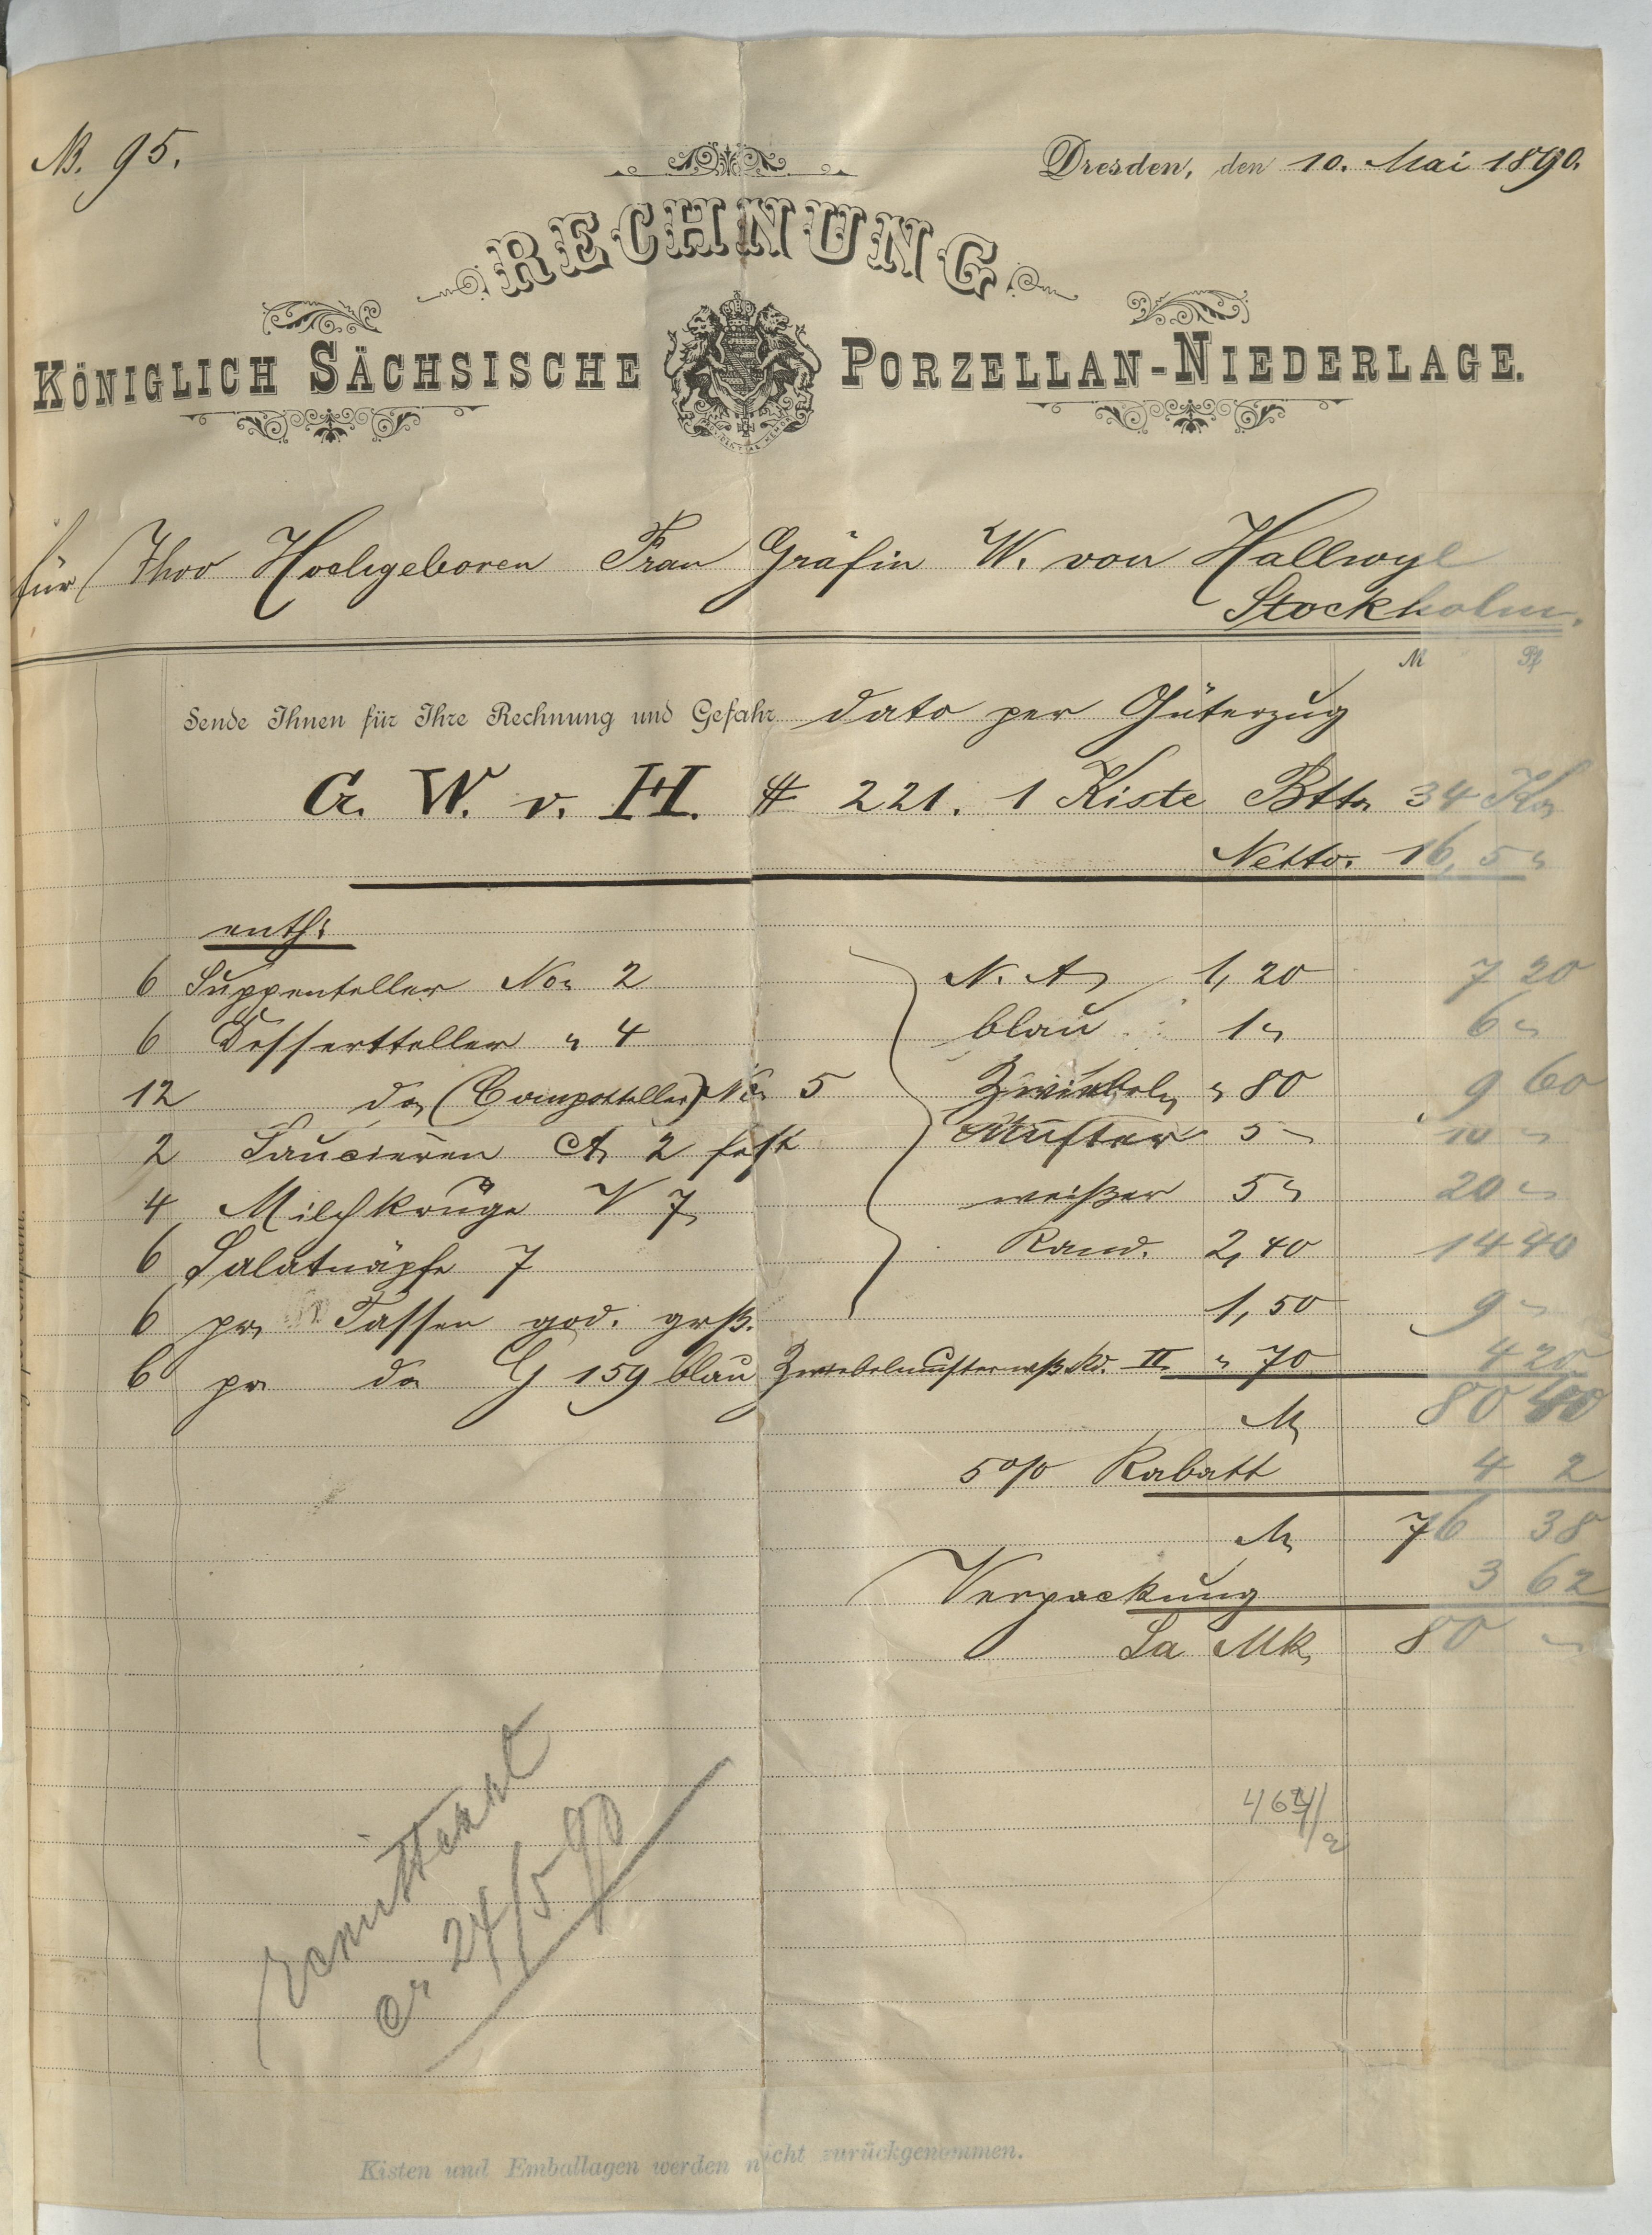 N. 95.
Dresden, den 10. Mai 1890.
RECHNUNG
KÖNIGLICH SÄCHSISCHE PORZELLAN-NIEDERLAGE.
PROVIDENTIAE MEMOR
für Ihro Hochgeboren Frau Gräfin W. von Hallwyl
Stockholm.
M Pf
Sende Ihnen für Ihre Rechnung und Gefahr dato per Güterzug
G. W. v. H. # 221. 1 Kiste Btto 34 Ko
Netto. 16,5 "
enth:
6 Suppenteller No 2 N. A. 1,20 7 20
6 Dessertteller " 4 blau 1 " 6 "
12 do (Compotteller) No 5 Zwiebel " 80 9 60
2 Saucièren A 2 fest Muster 5 " 10 "
4 Milchkrüge V 7 weißer 5 " 20 "
6 Salatnäpfe 7 Rand. 2,40 14 40
6 pr Tassen god. grß. 1,50 9 "
6 pr do G 159 blau Zwiebelmuster wß Rd. II " 70 4 20
M 80 40
5 o/o Rabatt 4 2
M 76 38
Verpackung 3 62
Sa Mk 80 "
24/5 90
Kisten und Emballagen werden nicht zurückgenommen.